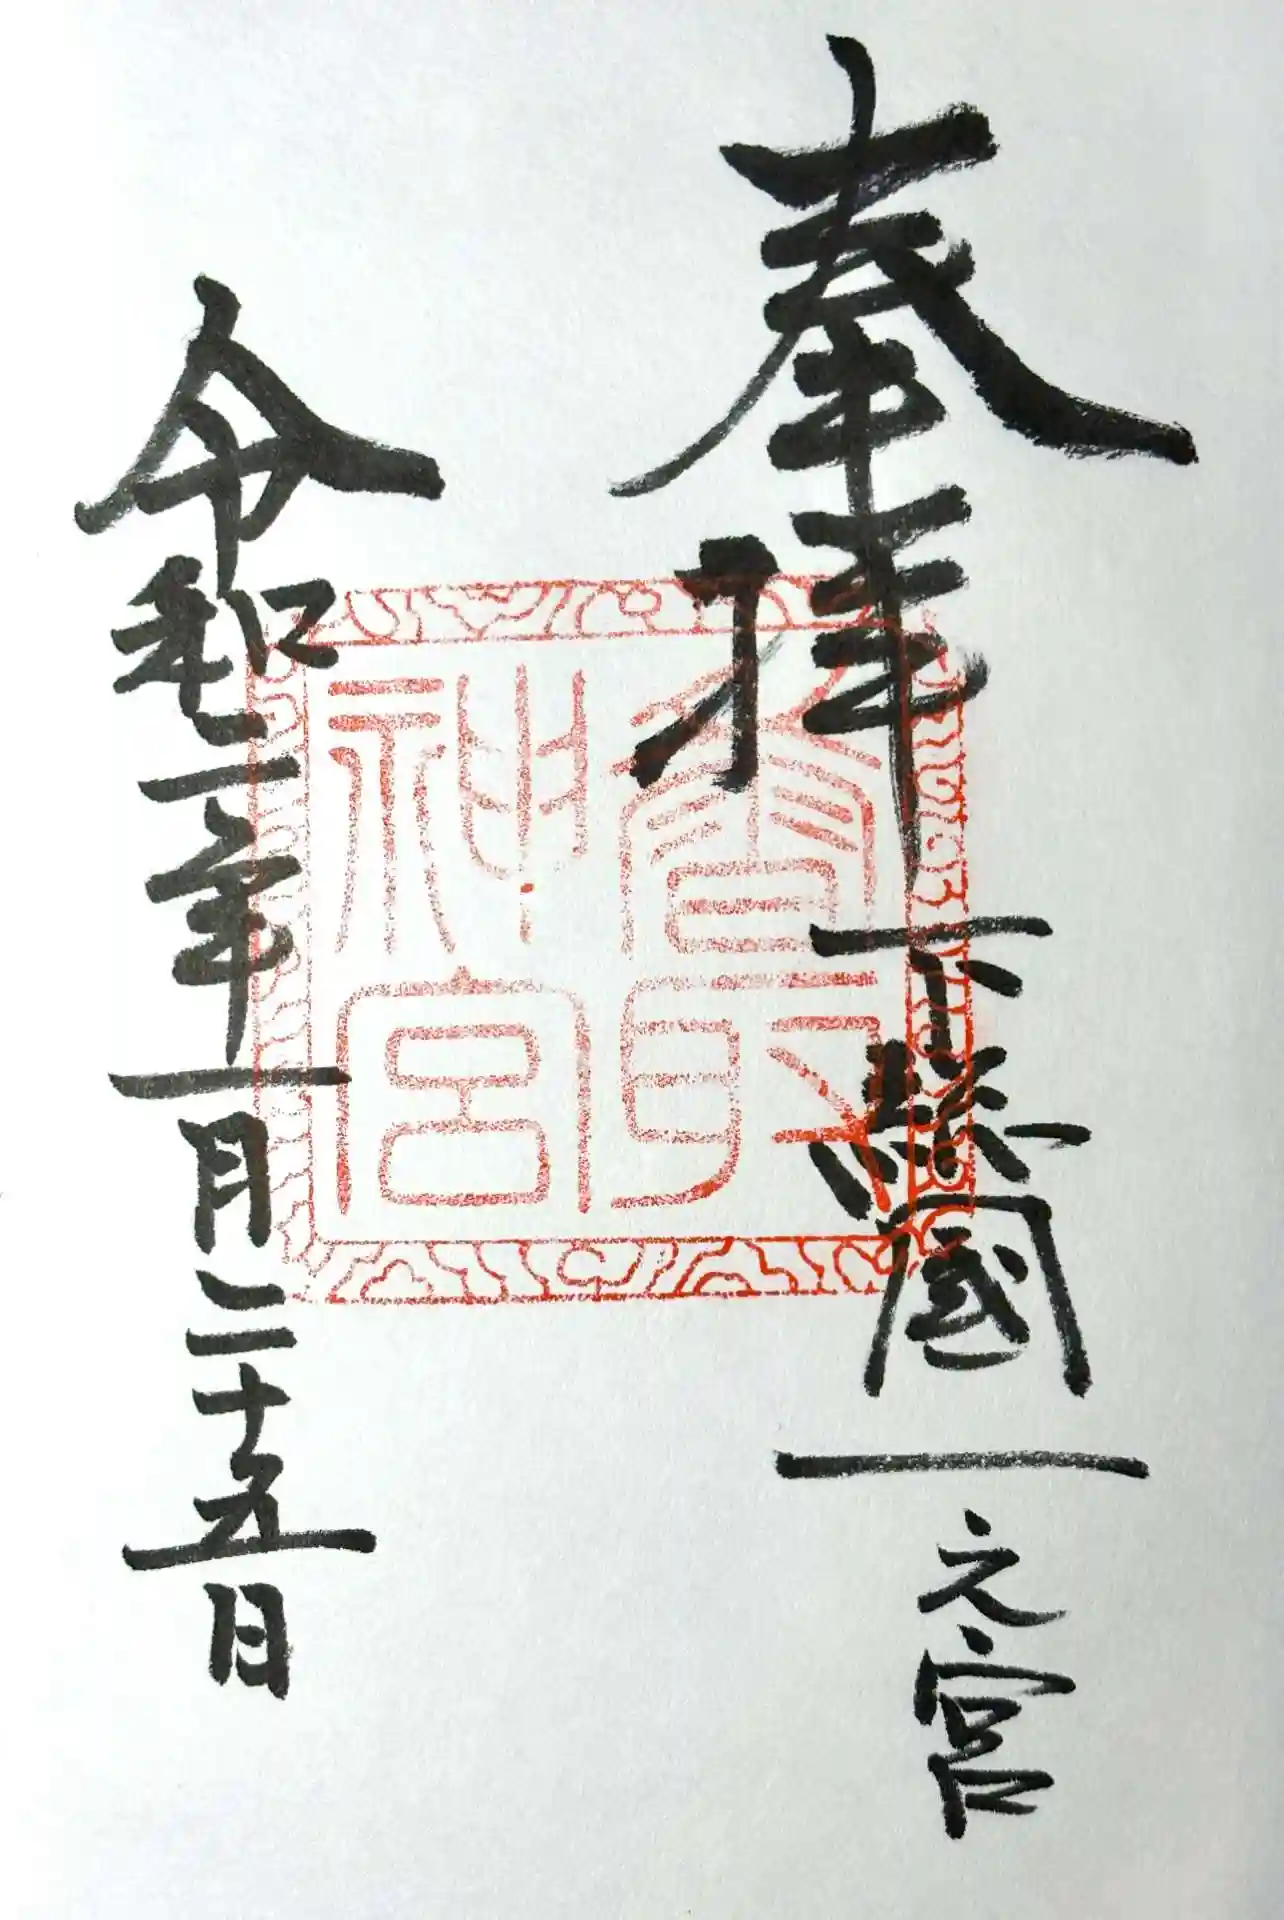 奉拝
下総國一之宮
香取
神宮
令和二年一月二十五日